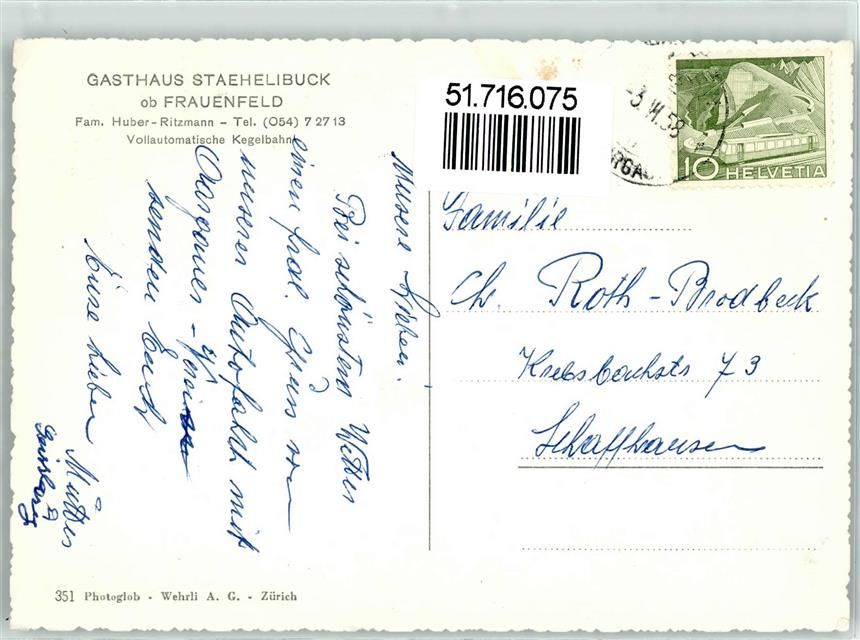 GASTHAUS STAEHELIBUCK
ob FRAUENFELD
Fam. Huber-Ritzmann - Tel. (054) 7 27 13
Vollautomatische Kegelbahn
51.716.075
-3.VI.58
10 HELVETIA
Familie
Ch. Roth-Brodbeck
Krebsbachstr 73
Schaffhausen
Unsere Lieben!
Bei schönstem Wetter
einen frdl. Gruss von
unserer Autofahrt mit
senden Euch
Eure lieben
Muttis
351 Photoglob - Wehrli A. G. - Zürich